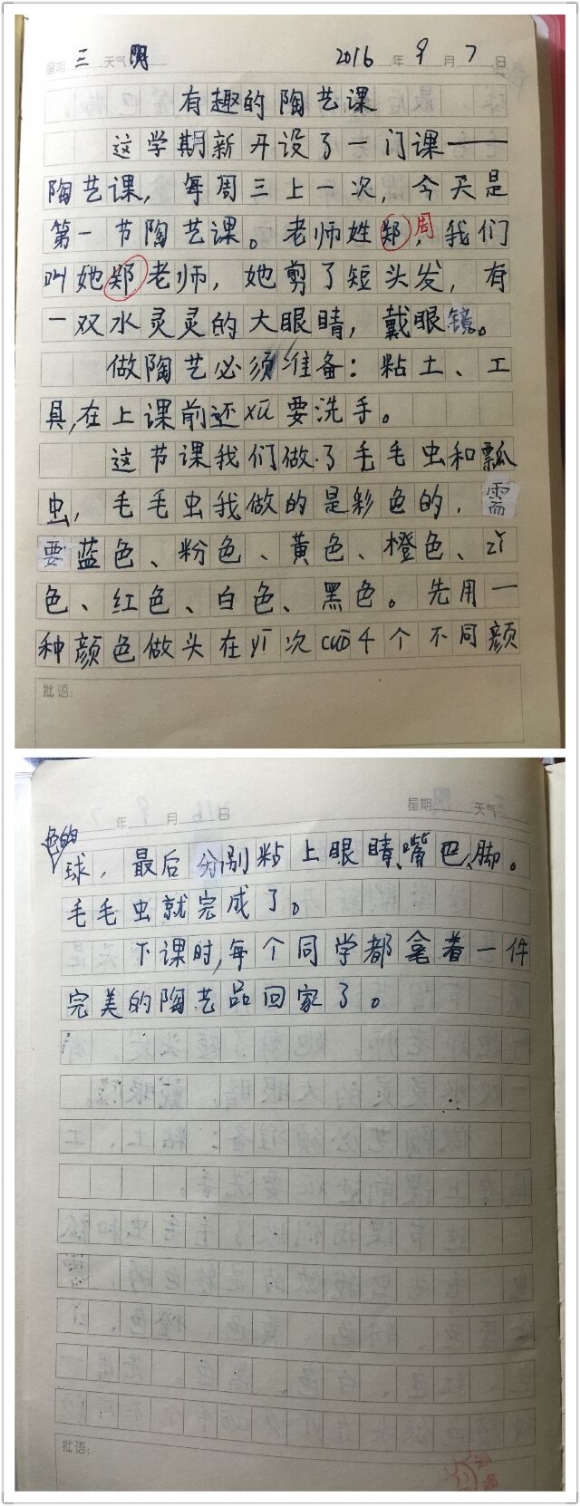 星期 三 天气 阴 2016 年 9 月 7 日
有趣的陶艺课
这学期新开设了一门课——
陶艺课，每周三上一次，今天是
第一节陶艺课。老师姓郑，周我们
叫她郑老师，她剪了短头发，有
一双水灵灵的大眼睛，戴眼镜。
做陶艺必须准备：粘土、工
具，在上课前还xū要洗手。
这节课我们做了毛毛虫和瓢
虫，毛毛虫我做的是彩色的，需
要蓝色、粉色、黄色、橙色、zǐ
色、红色、白色、黑色。先用一
种颜色做头在yī次cuō4个不同颜
批语：
年 月 日 星期 天气
色的
球，最后分别粘上眼睛、嘴巴、脚。
毛毛虫就完成了。
下课时，每个同学都拿着一件
完美的陶艺品回家了。
批语：